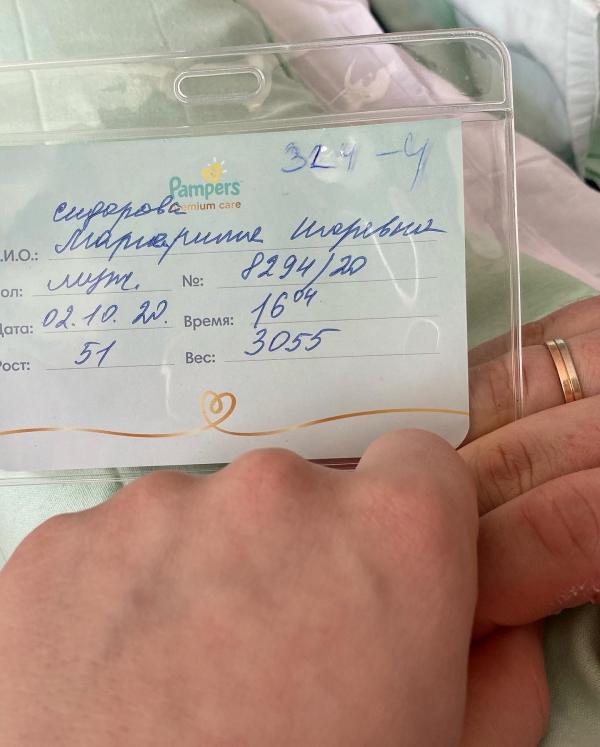 324-4
Pampers
premium care
Сидорова
.И.О.: Маргарита Игоревна
ол: муж. №: 8294/20
Дата: 02.10.20. Время: 16 04
Рост: 51 Вес: 3055